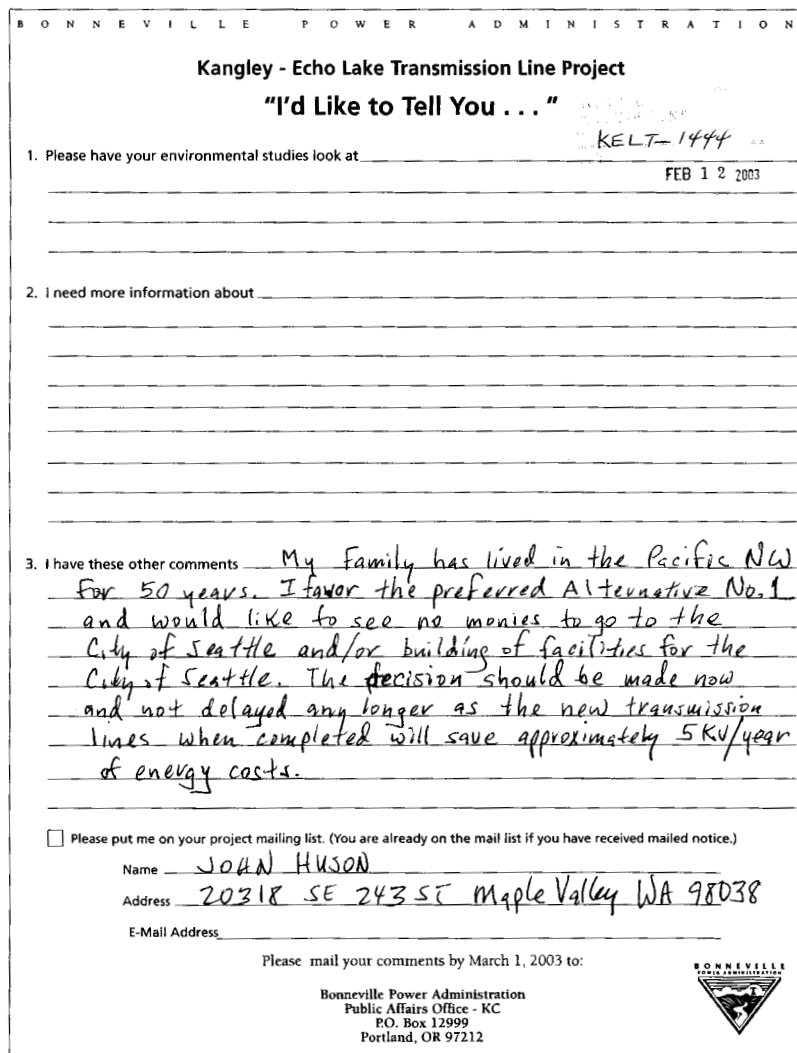 BONNEVILLE POWER ADMINISTRATION
Kangley - Echo Lake Transmission Line Project
"I'd Like to Tell You . . . "
KELT-1444
1. Please have your environmental studies look at
FEB 12 2003
2. I need more information about
3. I have these other comments My Family has lived in the Pacific NW
For 50 years. I favor the preferred Alternative No.1
and would like to see no monies to go to the
City of Seattle and/or building of facilities for the
City of Seattle. The decision should be made now
and not delayed any longer as the new transmission
lines when completed will save approximately 5 KV/year
of energy costs.
Please put me on your project mailing list. (You are already on the mail list if you have received mailed notice.)
Name JOHN HUSON
Address 20318 SE 243 ST Maple Valley WA 98038
E-Mail Address
Please mail your comments by March 1, 2003 to:
Bonneville Power Administration
Public Affairs Office - KC
P.O. Box 12999
Portland, OR 97212
BONNEVILLE
POWER ADMINISTRATION